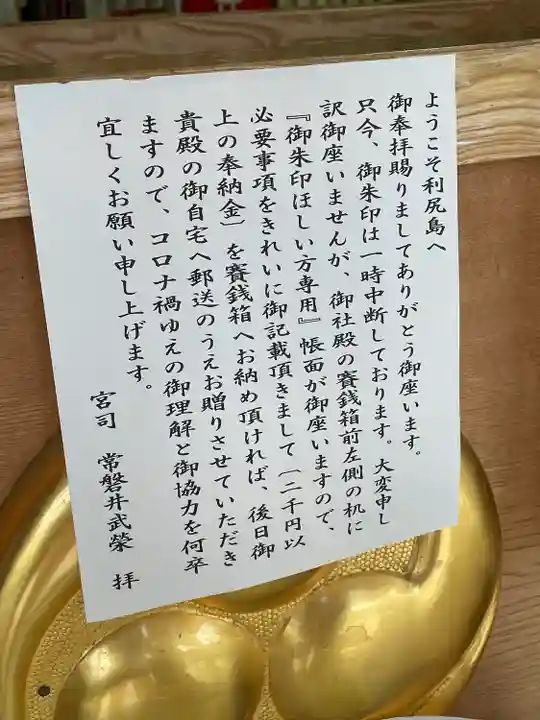 ようこそ利尻島へ
御奉拝賜りましてありがとう御座います。
只今、御朱印は一時中断しております。大変申し
訳御座いませんが、御社殿の賽銭箱前左側の机に
『御朱印ほしい方専用』帳面が御座いますので、
必要事項をきれいに御記載頂きまして（二千円以
上の奉納金）を賽銭箱へお納め頂ければ、後日御
貴殿の御自宅へ郵送のうえお贈りさせていただき
ますので、コロナ禍ゆえの御理解と御協力を何卒
宜しくお願い申し上げます。
宮司　常磐井武榮　拝